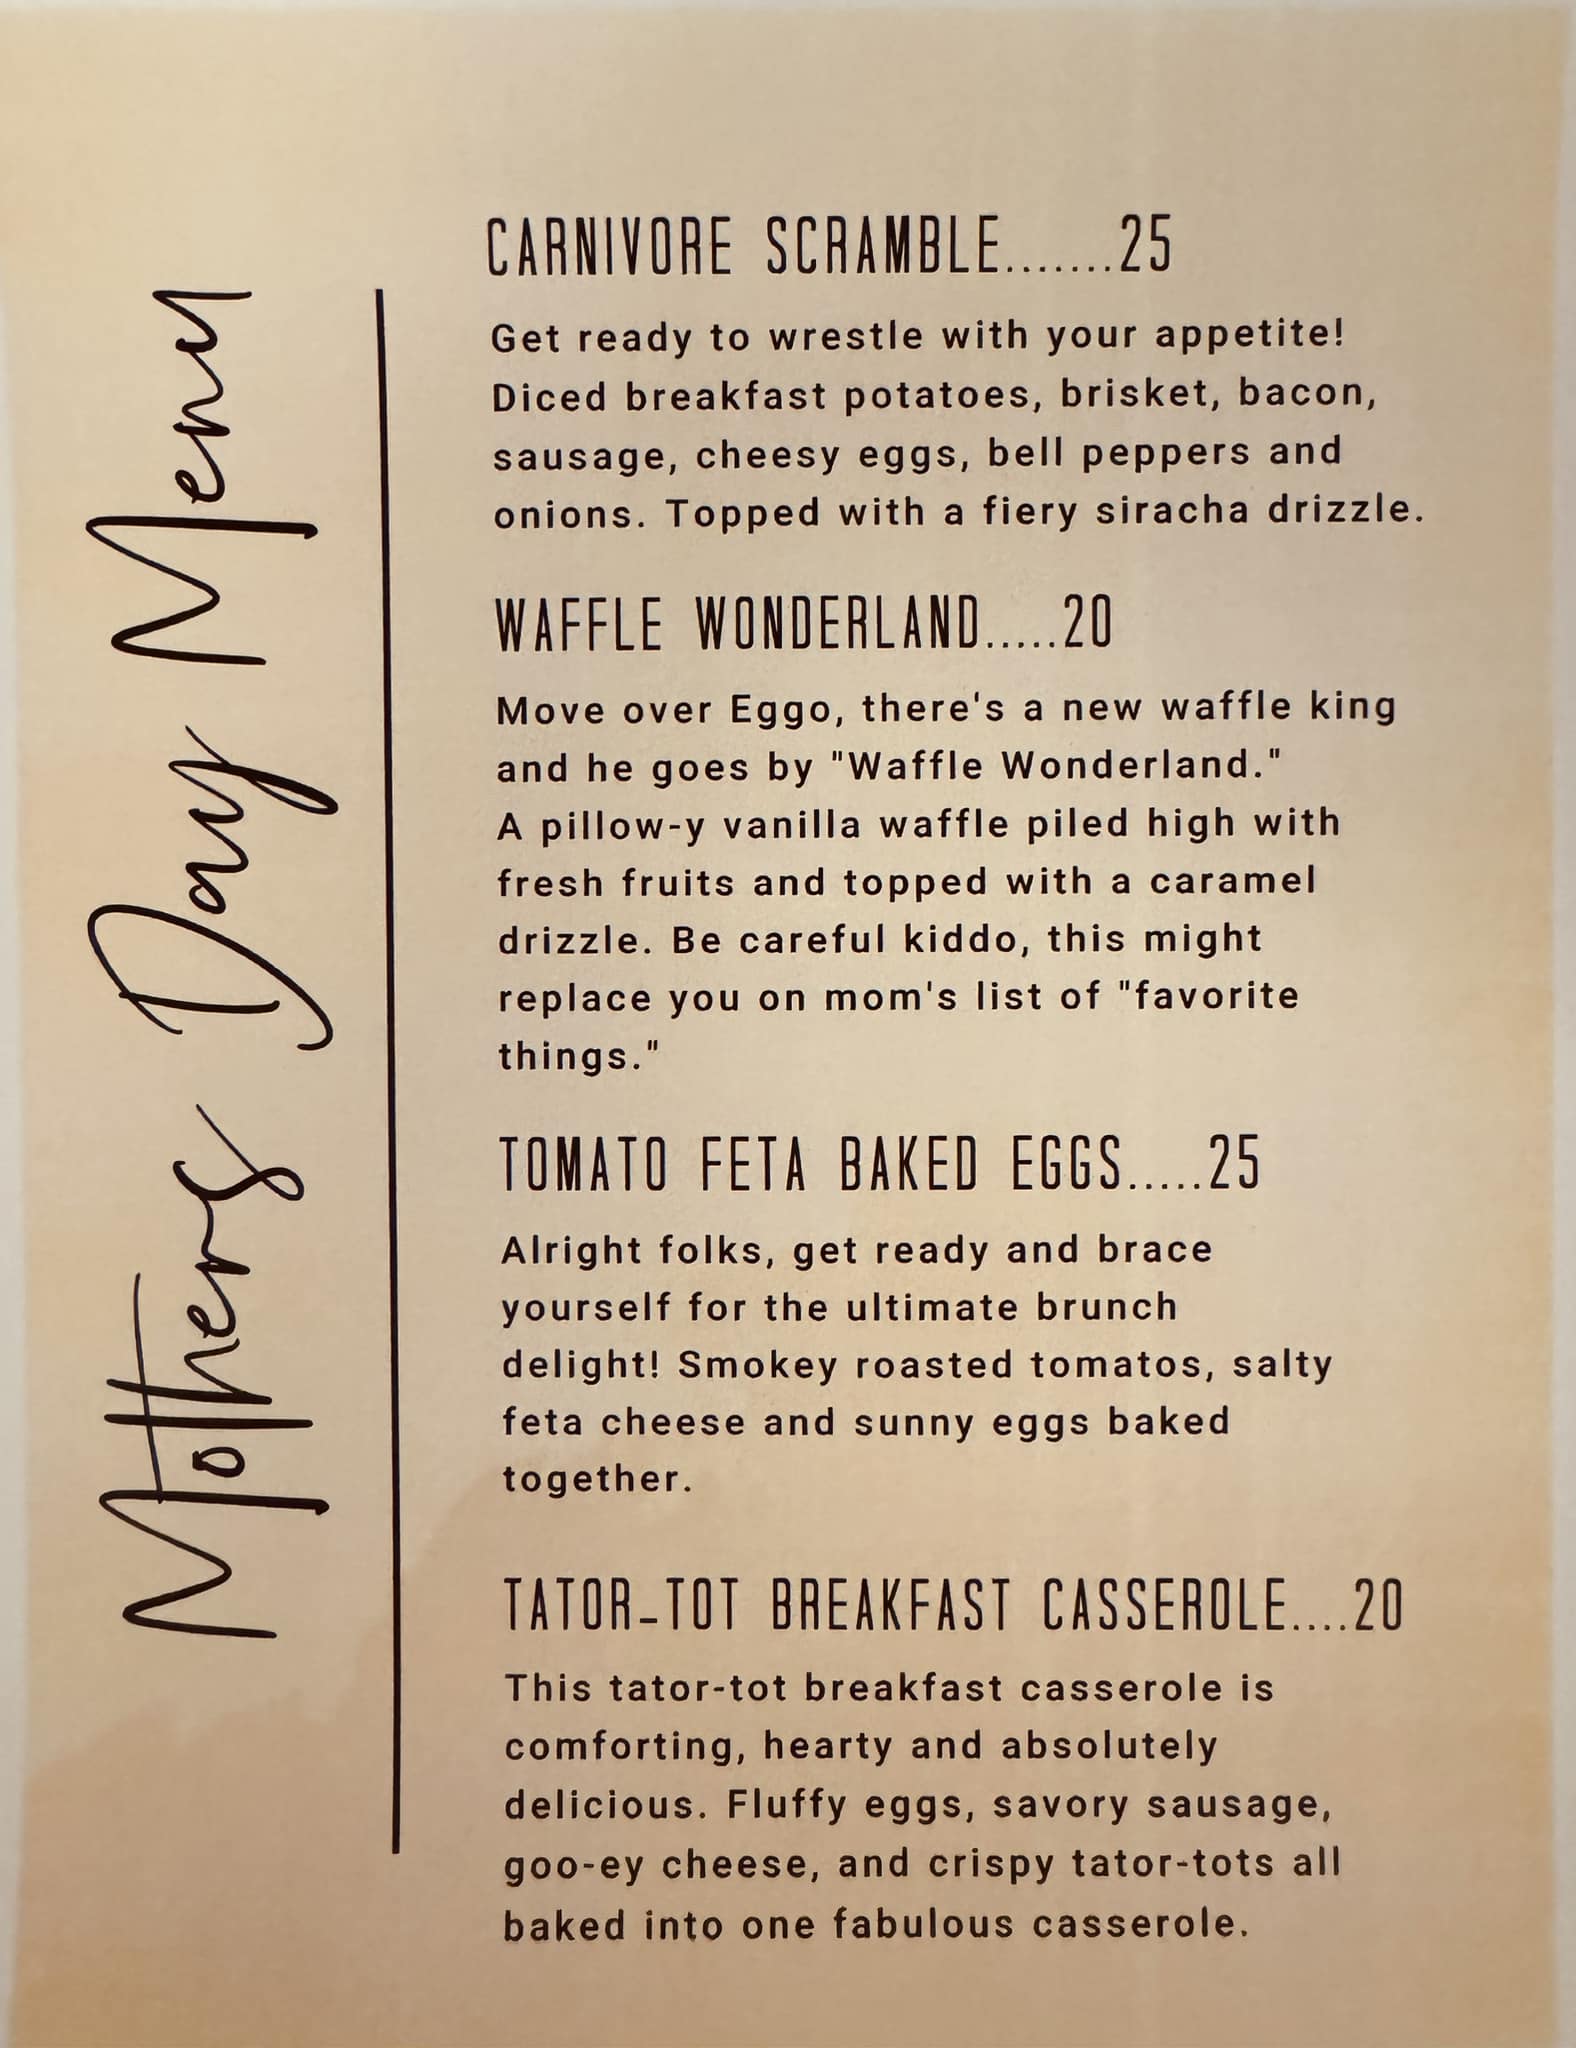 Mothers Day Menu
CARNIVORE SCRAMBLE.......25
Get ready to wrestle with your appetite!
Diced breakfast potatoes, brisket, bacon,
sausage, cheesy eggs, bell peppers and
onions. Topped with a fiery siracha drizzle.
WAFFLE WONDERLAND.....20
Move over Eggo, there's a new waffle king
and he goes by "Waffle Wonderland."
A pillow-y vanilla waffle piled high with
fresh fruits and topped with a caramel
drizzle. Be careful kiddo, this might
replace you on mom's list of "favorite
things."
TOMATO FETA BAKED EGGS.....25
Alright folks, get ready and brace
yourself for the ultimate brunch
delight! Smokey roasted tomatos, salty
feta cheese and sunny eggs baked
together.
TATOR-TOT BREAKFAST CASSEROLE....20
This tator-tot breakfast casserole is
comforting, hearty and absolutely
delicious. Fluffy eggs, savory sausage,
goo-ey cheese, and crispy tator-tots all
baked into one fabulous casserole.